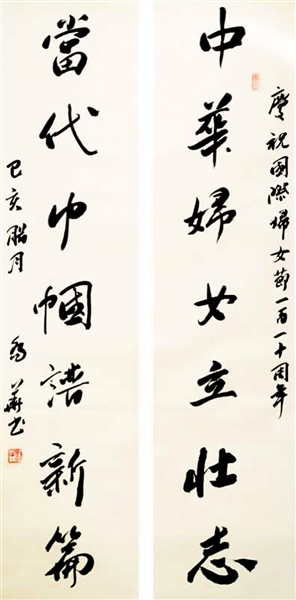 慶祝國際婦女節一百一十周年
中華婦女立壯志
當代巾幗譜新篇
己亥腊月 喬華书